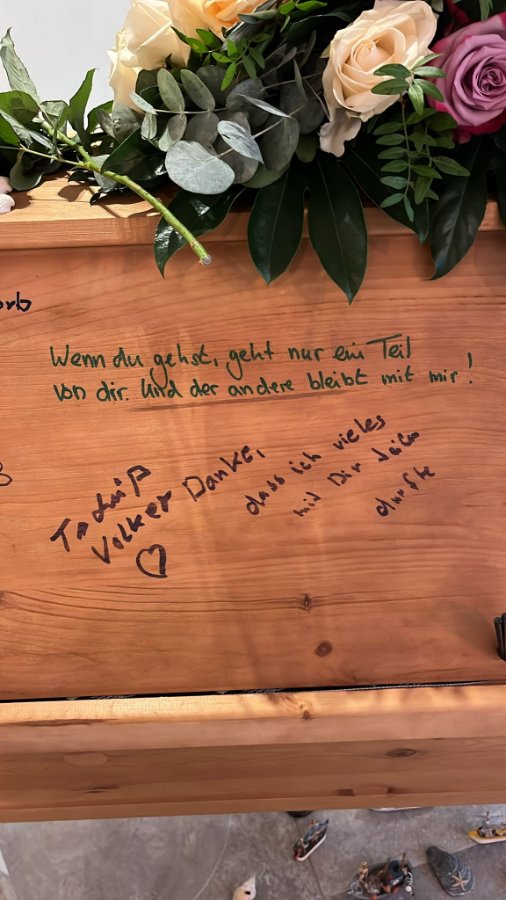 Wenn du gehst, geht nur ein Teil
von dir. Und der andere bleibt mit mir!
Tschüß
Volker Danke,
dass ich vieles
mit Dir
durfte